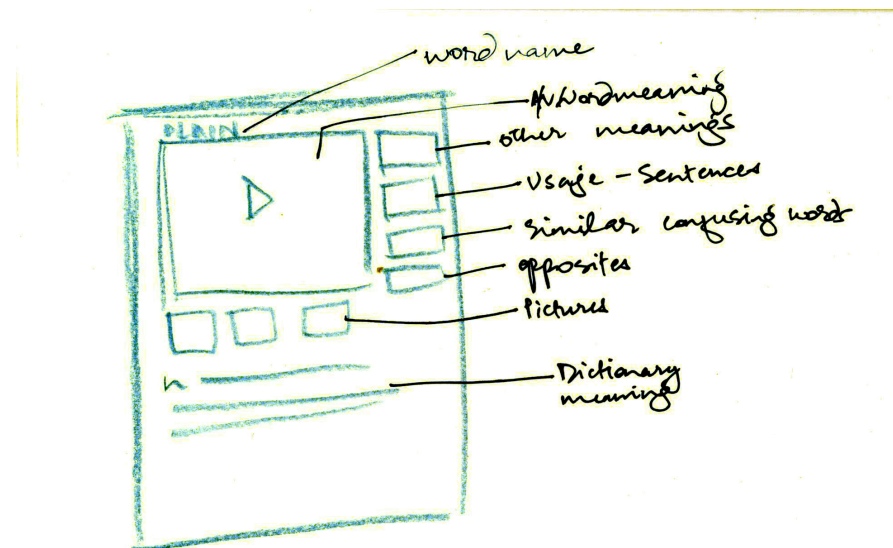 word name
PLAIN
AV Wordmeaning
other meanings
Usage - Sentences
similar confusing words
opposites
Pictures
n
Dictionary
meaning